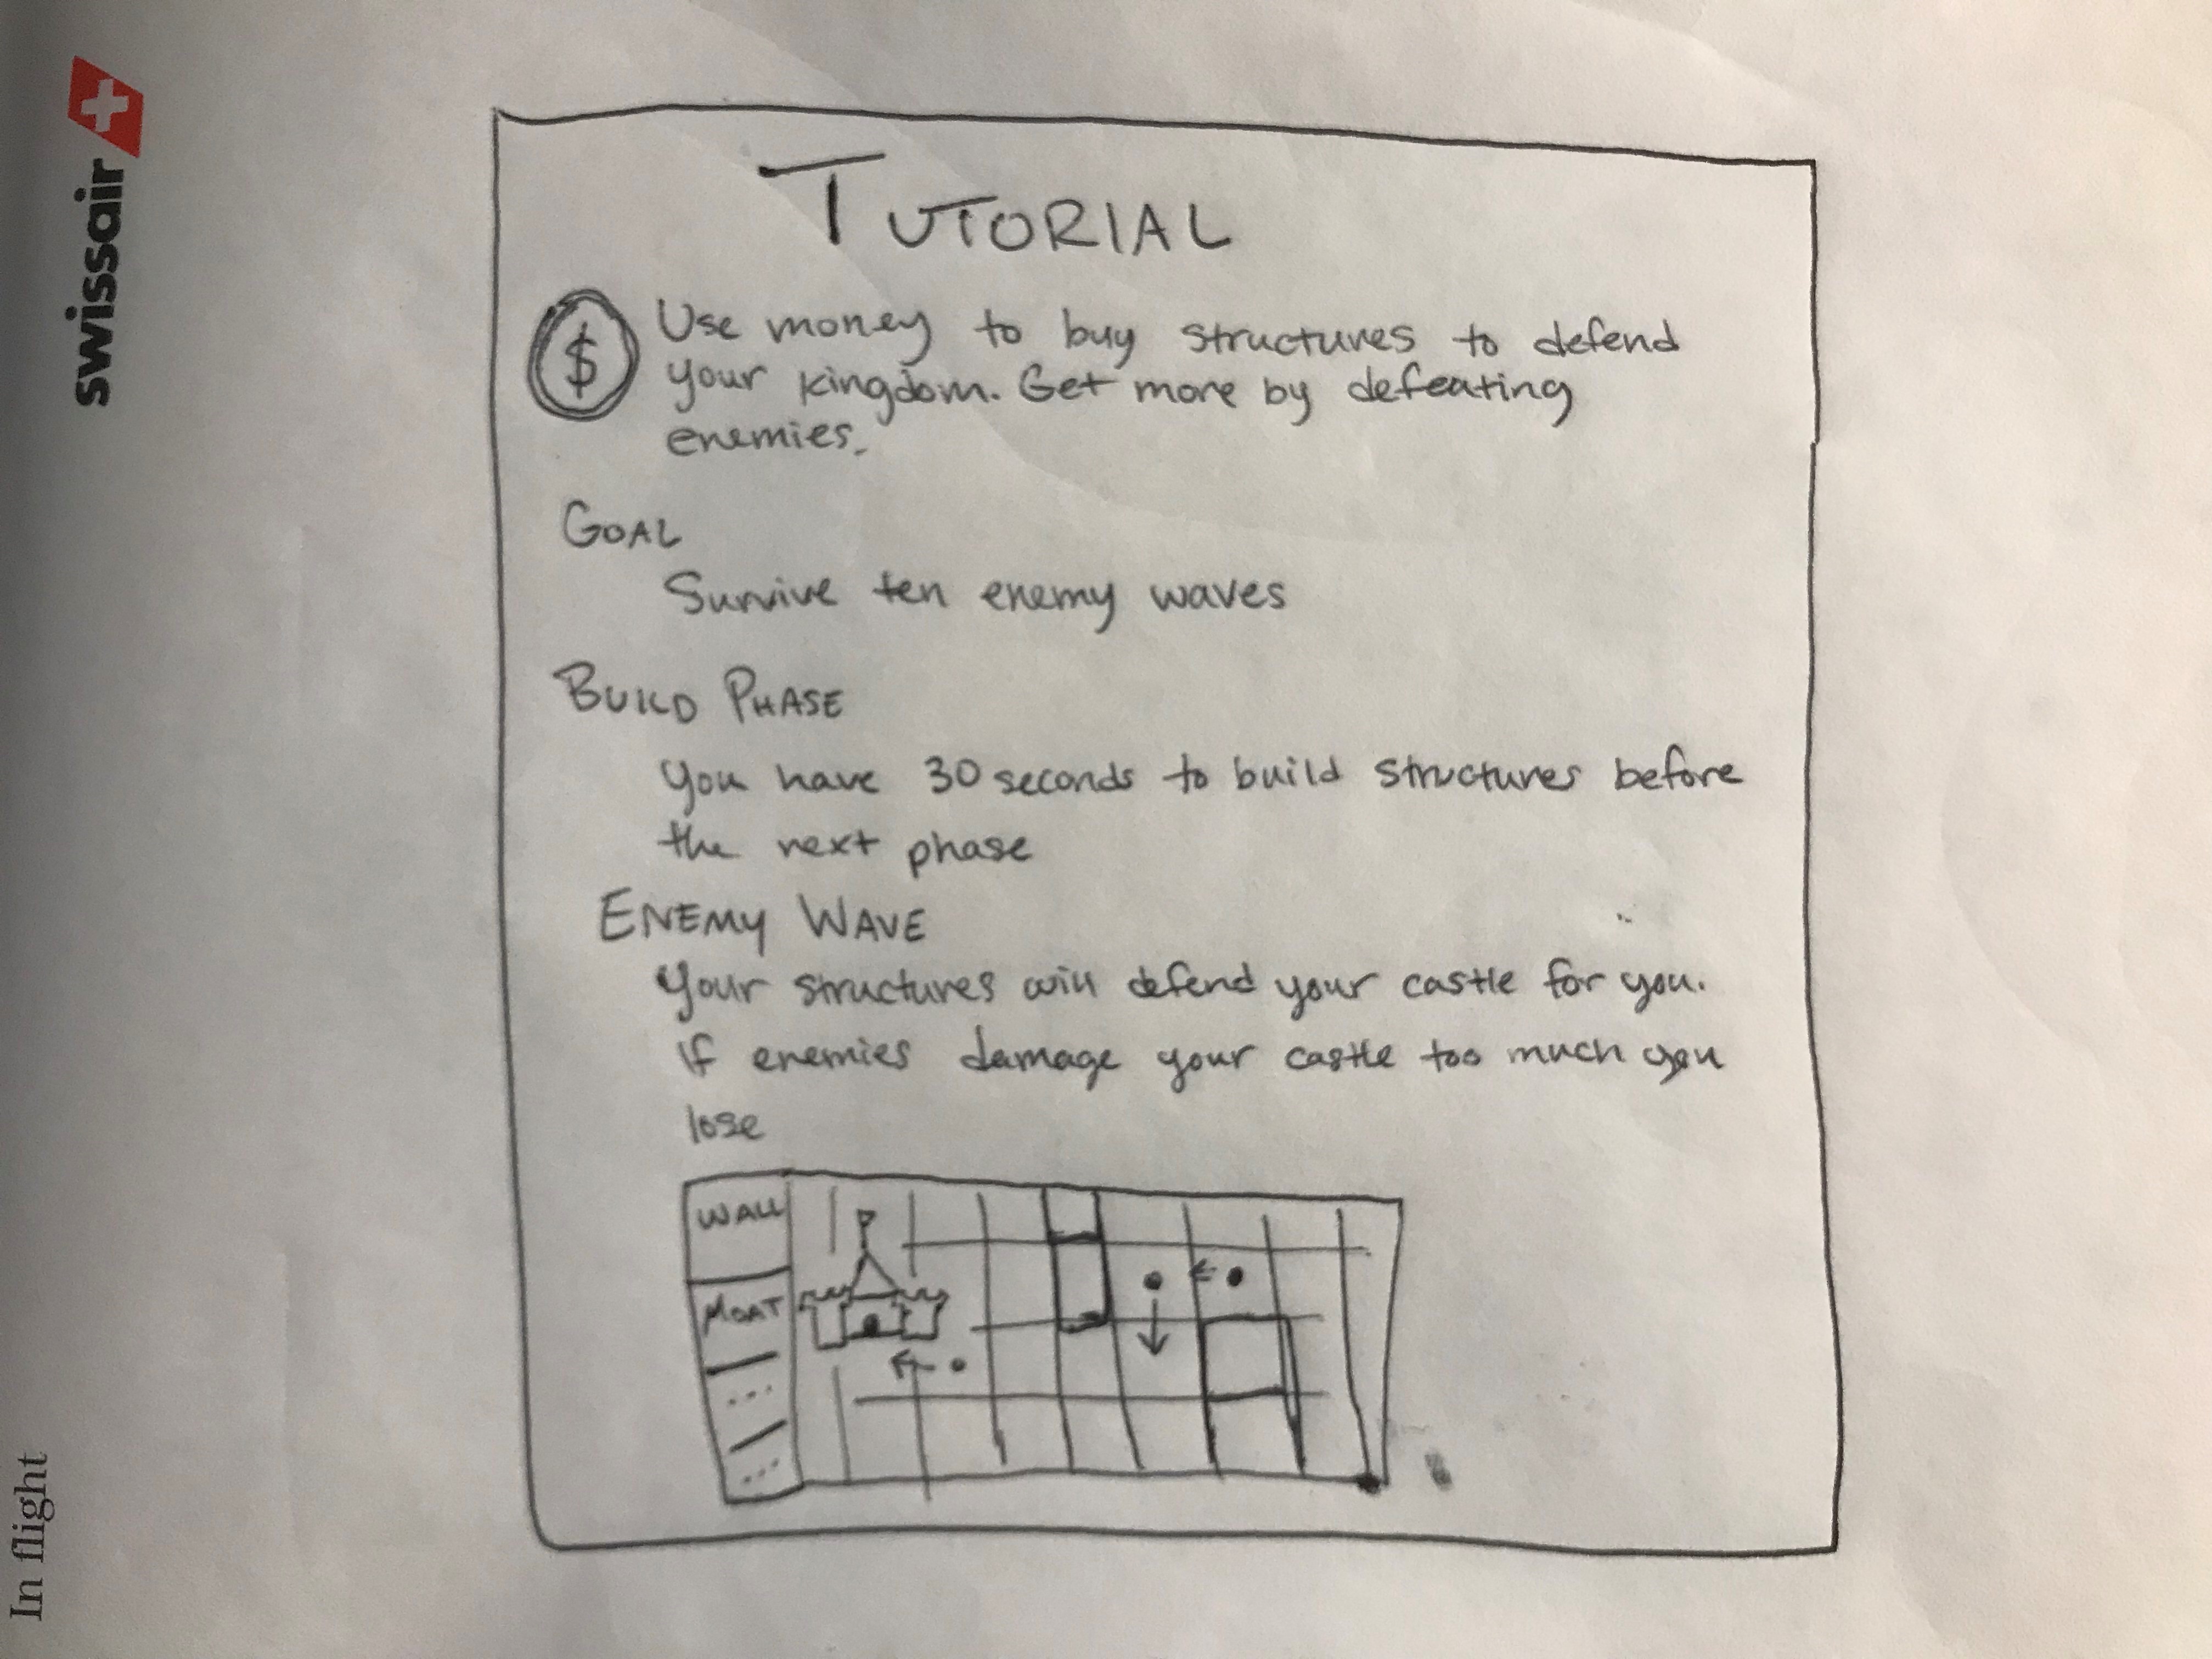 swissair
In flight
TUTORIAL
$
Use money to buy structures to defend
your kingdom. Get more by defeating
enemies.
GOAL
Survive ten enemy waves
BUILD PHASE
You have 30 seconds to build structures before
the next phase
ENEMY WAVE
Your structures will defend your castle for you.
If enemies damage your castle too much you
lose
WALL
MOAT
...
...